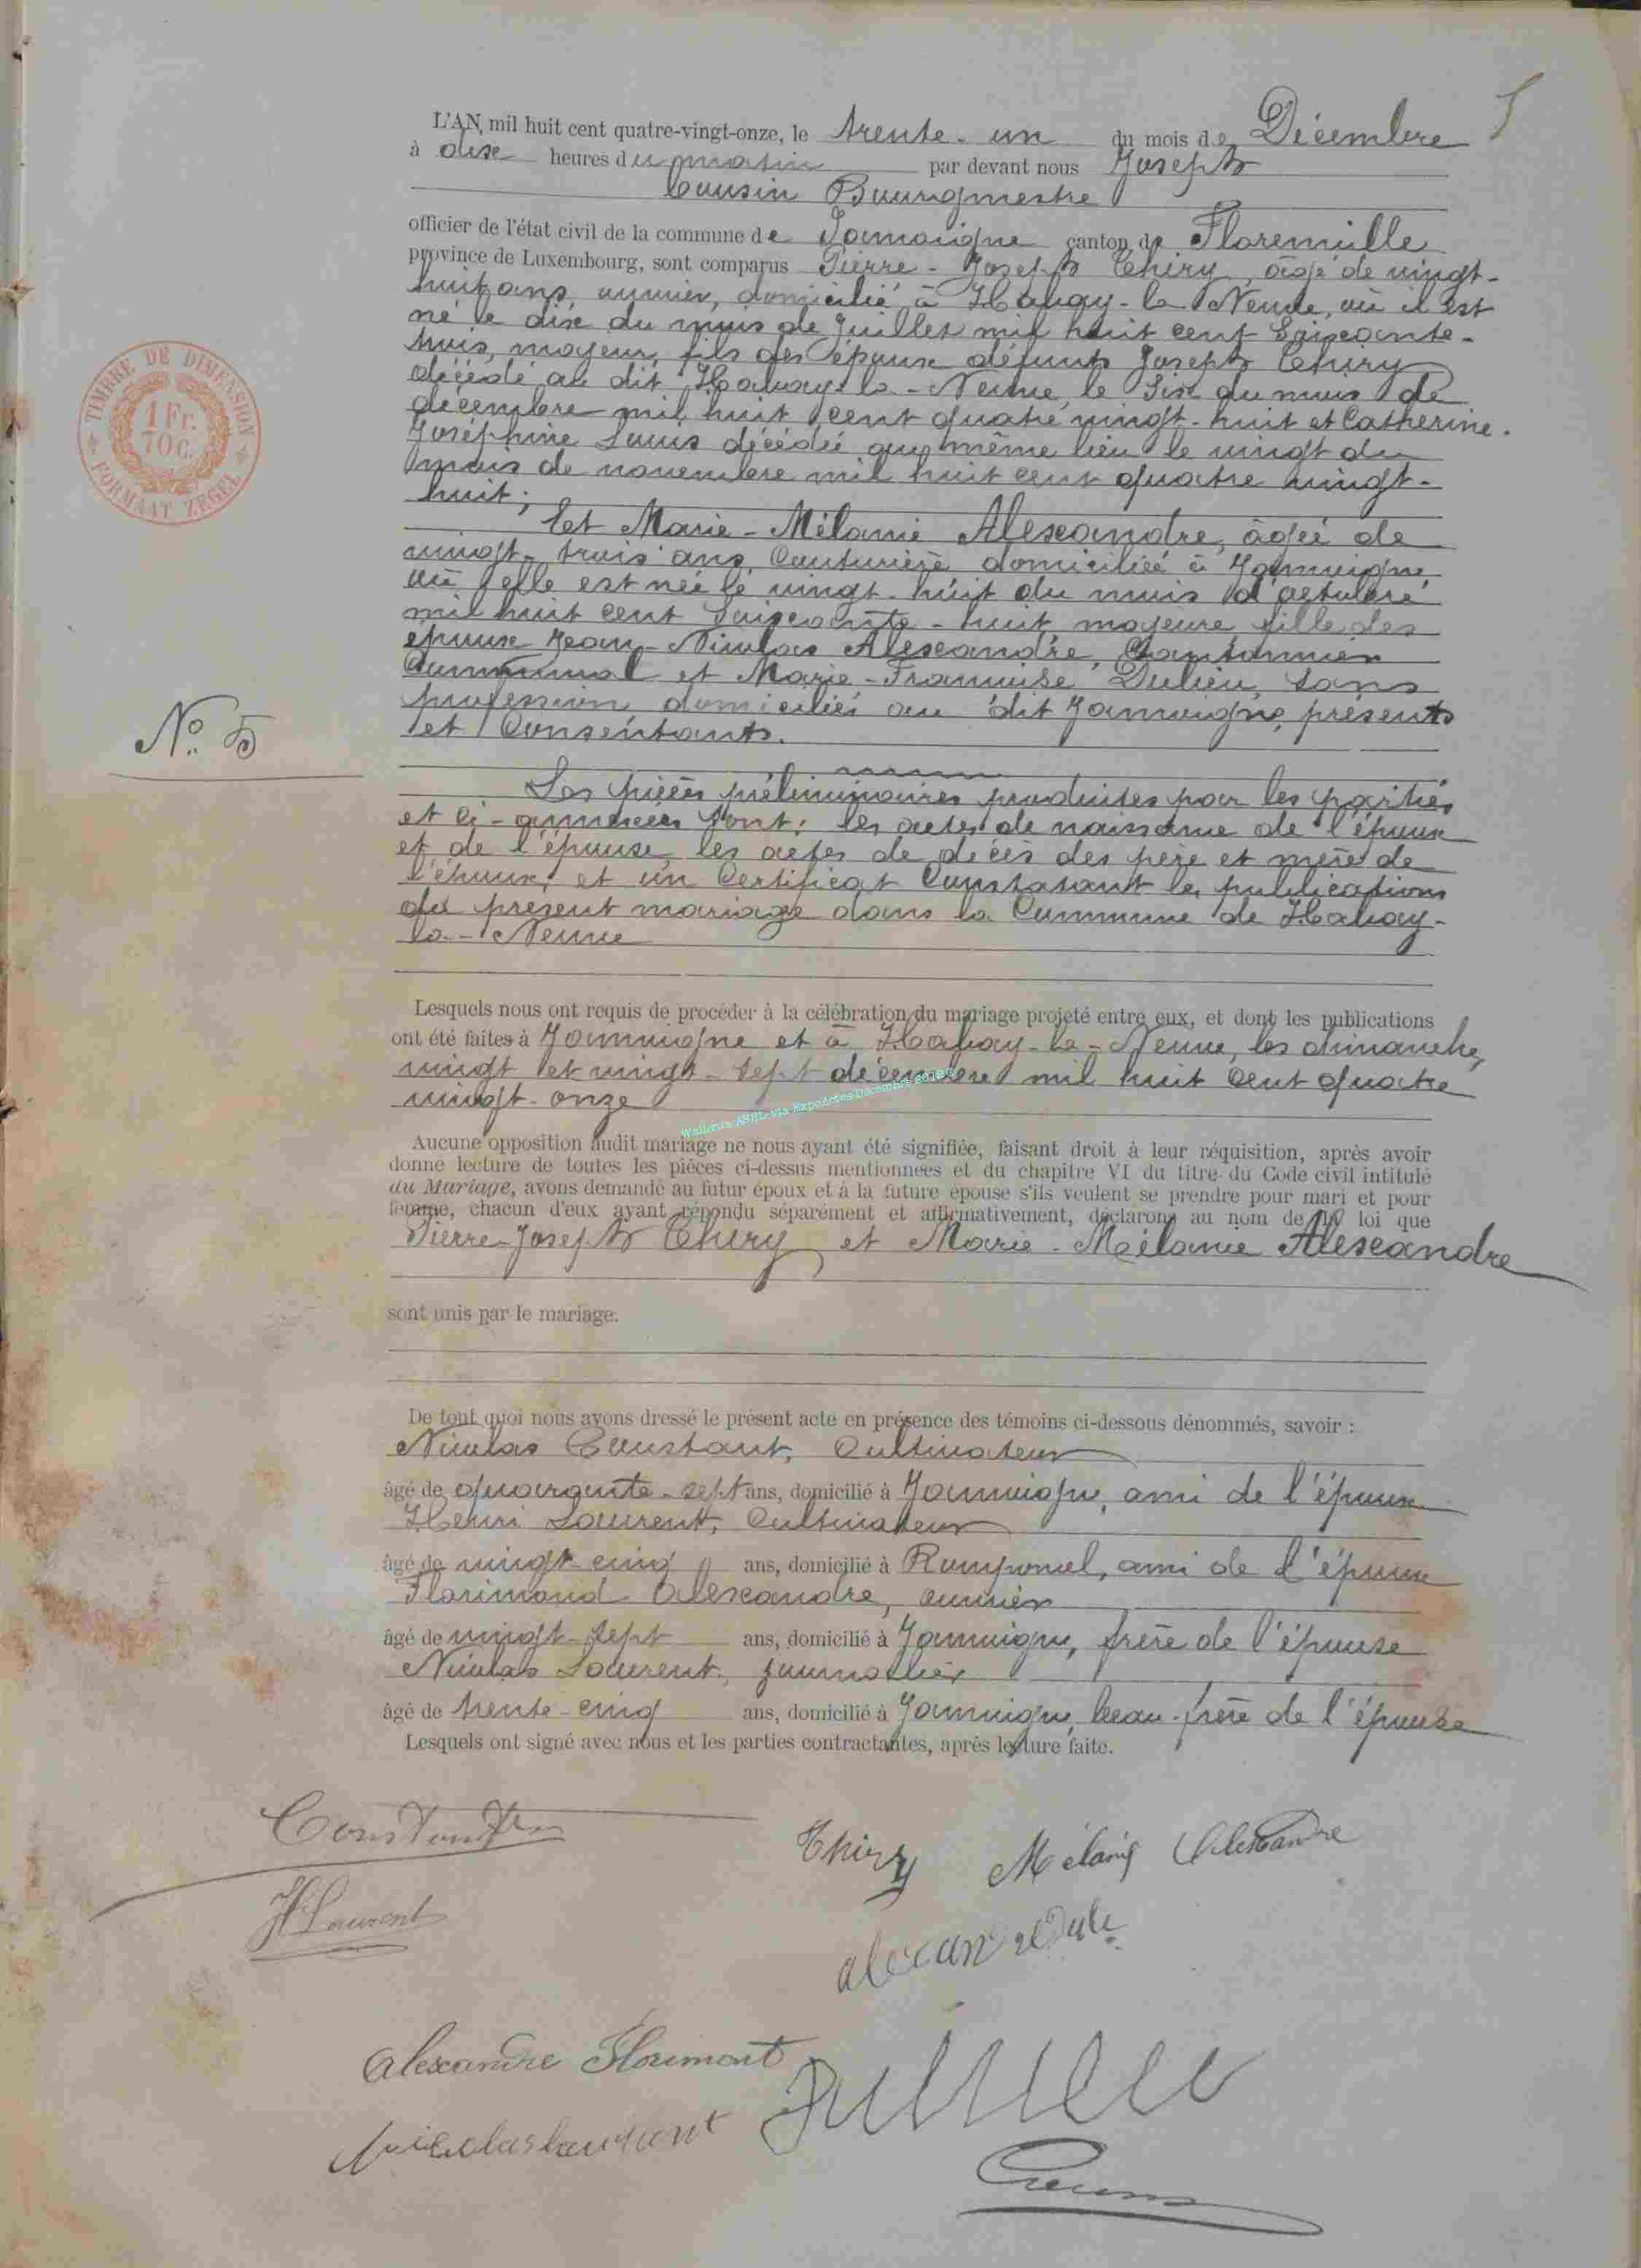 5
L'AN, mil huit cent quatre-vingt-onze, le trente-un du mois de Décembre
à dix heures du matin par devant nous Joseph
Cousin Bourgmestre
officier de l'état civil de la commune de Jamoigne canton de Florenville
province de Luxembourg, sont comparus Pierre-Joseph Thiry, âgé de vingt-
huit ans, ouvrier, domicilié à Habay-la-Neuve, où il est
né le dix du mois de Juillet mil huit cent soixante-
trois, majeur, fils des époux défunts Joseph Thiry
décédé au dit Habay-la-Neuve, le six du mois de
décembre mil huit cent quatre vingt-huit et Catherine-
Joséphine Louis décédée au même lieu le vingt du
mois de novembre mil huit cent quatre vingt-
huit;
Et Marie-Mélanie Alexandre, âgée de
vingt-trois ans, Couturière domiciliée à Jamoigne,
où elle est née le vingt-huit du mois d'octobre
mil huit cent soixante-huit, majeure, fille des
époux Jean-Nicolas Alexandre, Cantonnier
Communal et Marie-Françoise Dulieu, sans
profession domiciliés au dit Jamoigne, présents
et Consentants.
N° 5
Les pièces préliminaires produites par les parties
et ci-annexées sont: les actes de naissance de l'époux
et de l'épouse, les actes de décès des père et mère de
l'époux, et un Certificat Constatant les publications
du présent mariage dans la Commune de Habay-
la-Neuve
Lesquels nous ont requis de procéder à la célébration du mariage projeté entre eux, et dont les publications
ont été faites à Jamoigne et à Habay-la-Neuve, les dimanche,
vingt et vingt-sept décembre mil huit cent quatre
vingt-onze
Aucune opposition audit mariage ne nous ayant été signifiée, faisant droit à leur réquisition, après avoir
donné lecture de toutes les pièces ci-dessus mentionnées et du chapitre VI du titre du Code civil intitulé
du Mariage, avons demandé au futur époux et à la future épouse s'ils veulent se prendre pour mari et pour
femme, chacun d'eux ayant répondu séparément et affirmativement, déclarons au nom de la loi que
Pierre-Joseph Thiry et Marie-Mélanie Alexandre
sont unis par le mariage.
De tout quoi nous avons dressé le présent acte en présence des témoins ci-dessous dénommés, savoir :
Nicolas Constant, Cultivateur
âgé de quarante-sept ans, domicilié à Jamoigne, ami de l'époux
Henri Laurent, Cultivateur
âgé de vingt-cinq ans, domicilié à Romponcel, ami de l'époux
Florimond Alexandre, ouvrier
âgé de vingt-sept ans, domicilié à Jamoigne, frère de l'épouse
Nicolas Laurent, journalier
âgé de trente-cinq ans, domicilié à Jamoigne, beau-frère de l'épouse
Lesquels ont signé avec nous et les parties contractantes, après lecture faite.
Constant
Thiry Mélanie Alexandre
H Laurent
Alexandre Florimont
Nicolas Laurent
TIMBRE DE DIMENSION
1 Fr.
70 c.
FORMAAT ZEGEL